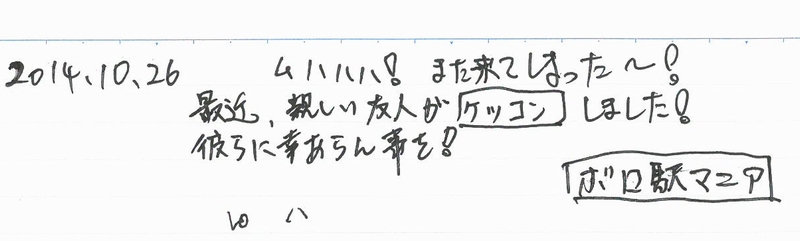 2014.10.26 ムハハハ! また来てしまった〜!
最近、親しい友人がケッコンしました!
彼らに幸あらん事を!
ボロ駅マニア